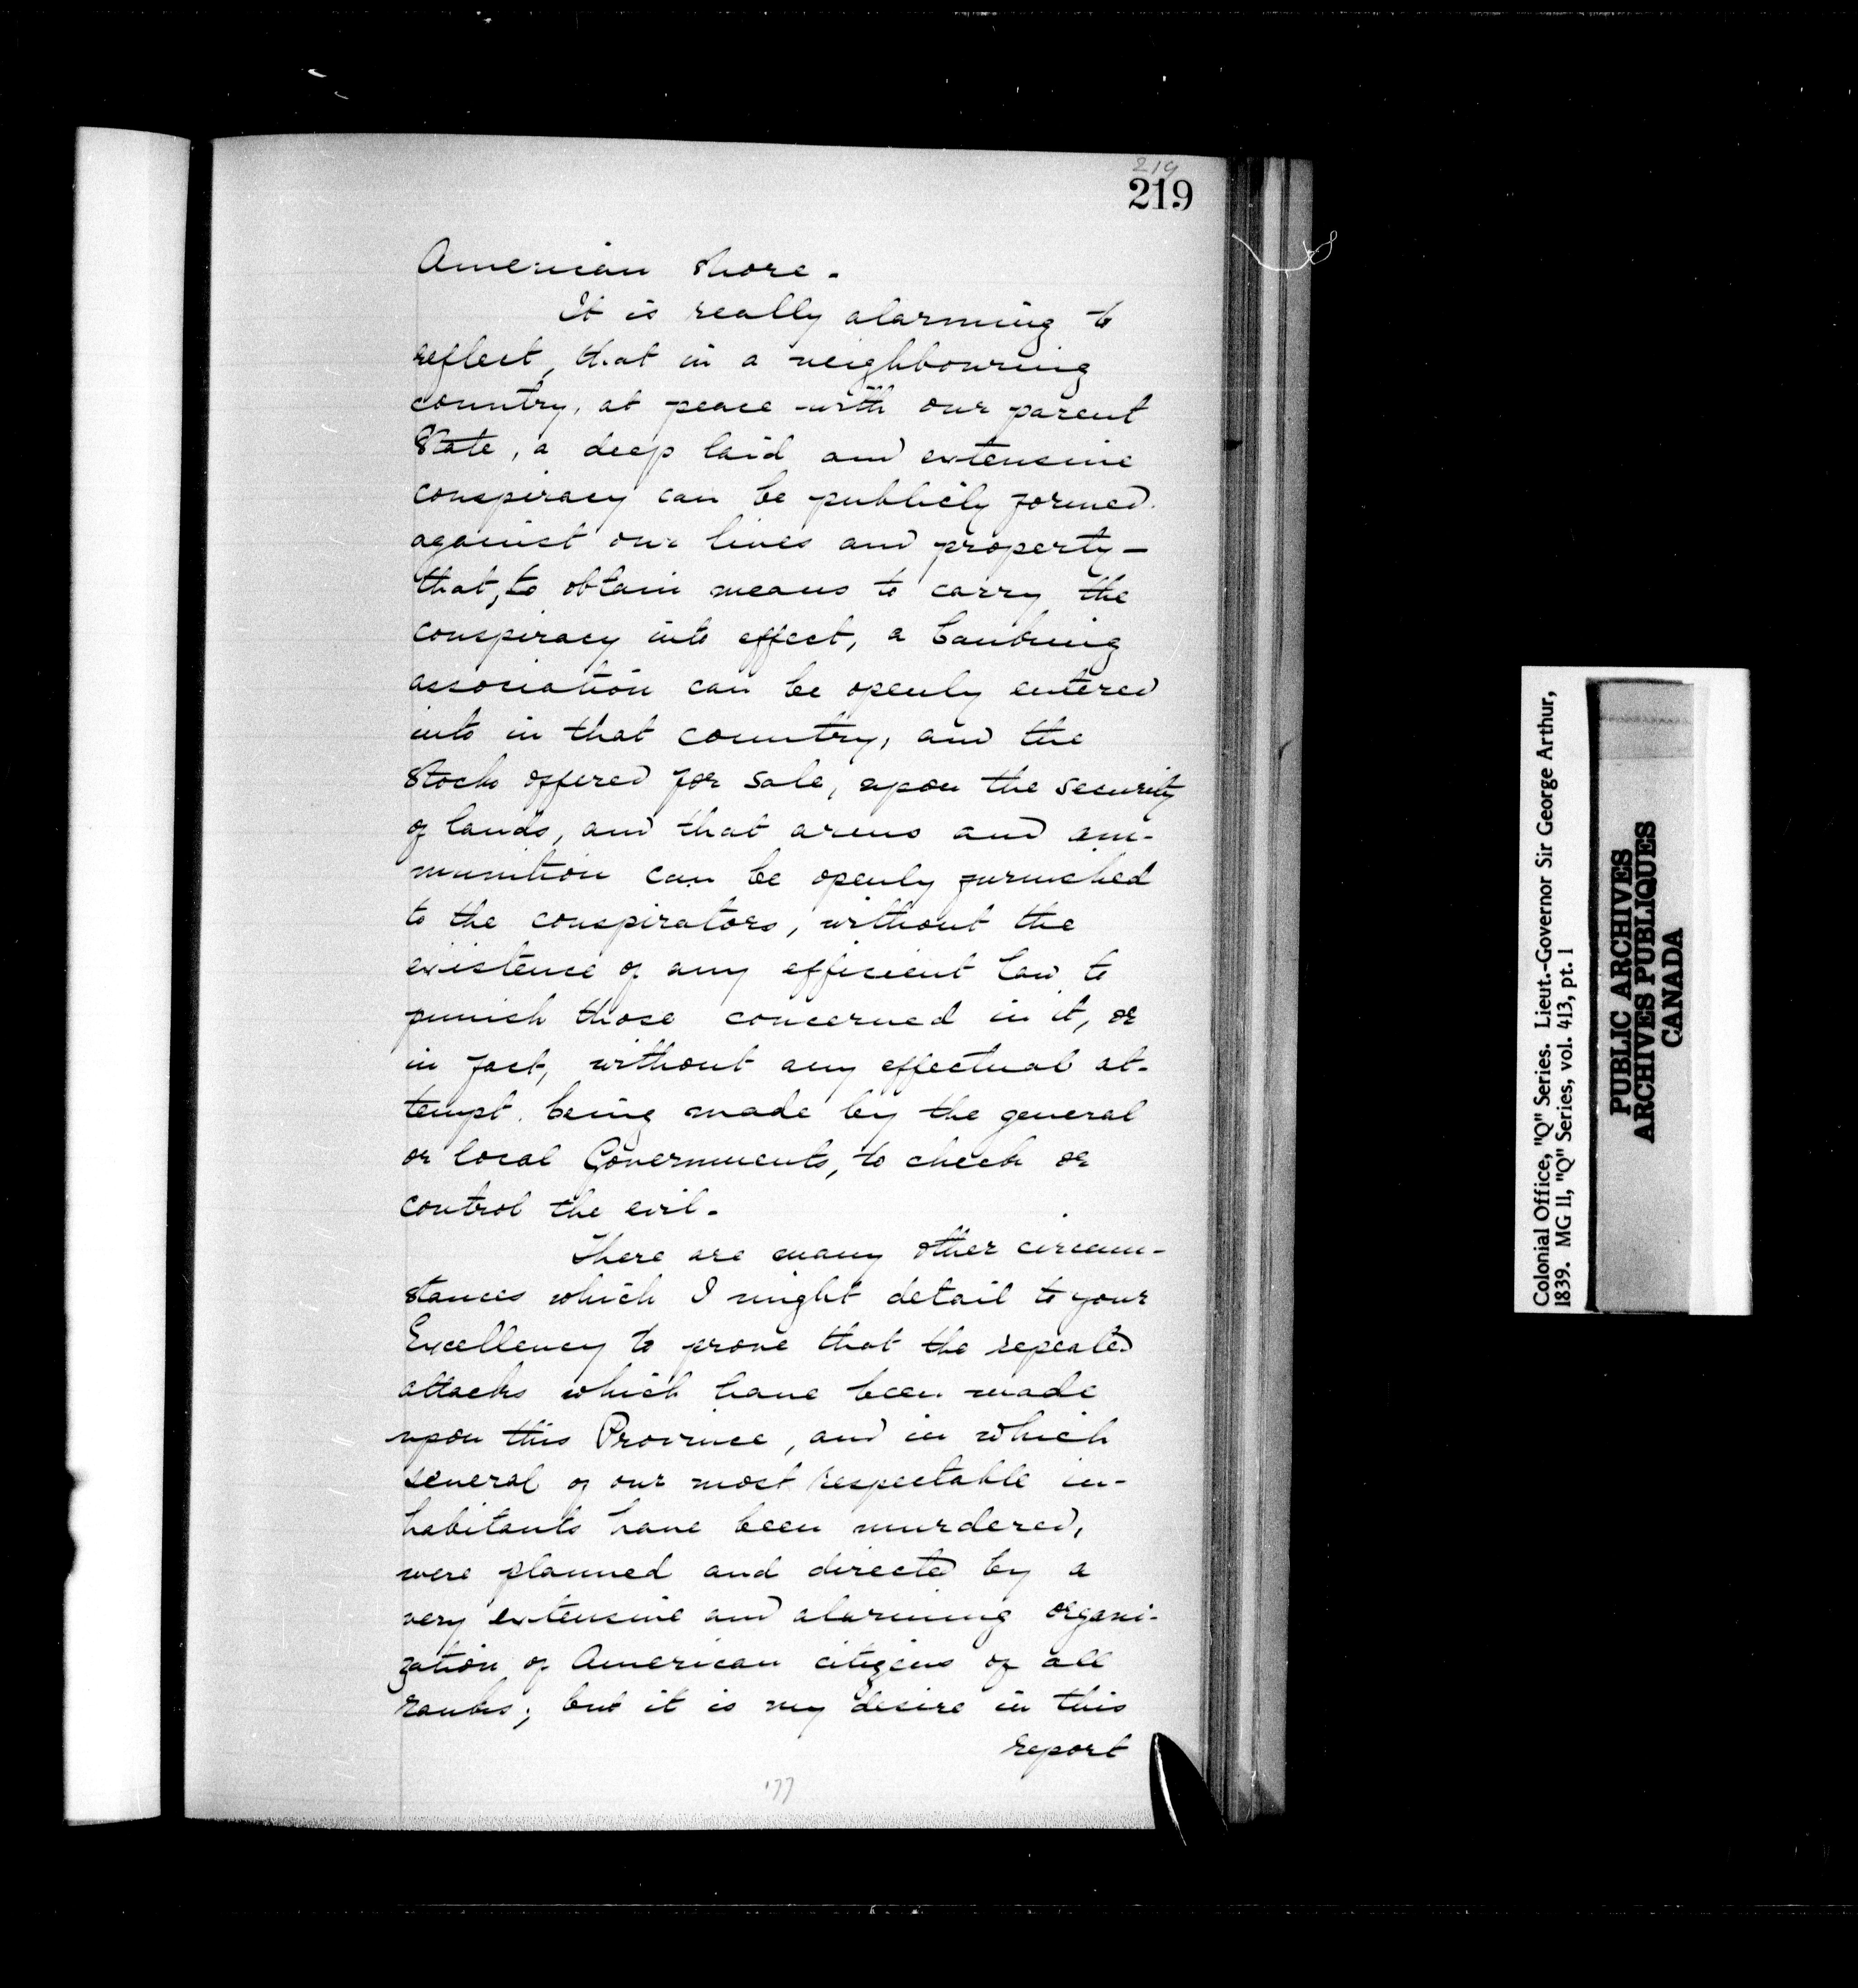 219
219
American shore.
It is really alarming to
reflect, that in a neighbouring
country, at peace with our parent
State, a deep laid and extensive
conspiracy can be publicly formed
against our lives and property—
that, to obtain means to carry the
conspiracy into effect, a banking
association can be openly entered
into in that country, and the
Stock offered for sale, upon the security
of lands, and that arms and am-
munition can be openly furnished
to the conspirators, without the
existence of any efficient law to
punish those concerned in it, or
in fact, without any effectual at-
tempt being made by the general
or local Governments, to check or
control the evil.
There are many other circum-
stances which I might detail to your
Excellency to prove that the repeated
attacks which have been made
upon this Province, and in which
several of our most respectable in-
habitants have been murdered,
were planned and directed by a
very extensive and alarming organi-
zation of American citizens of all
ranks; but it is my desire in this
report
177
Colonial Office, "Q" Series. Lieut.-Governor Sir George Arthur,
1839. MG 11, "Q" Series, vol. 413, pt. 1
PUBLIC ARCHIVES
ARCHIVES PUBLIQUES
CANADA